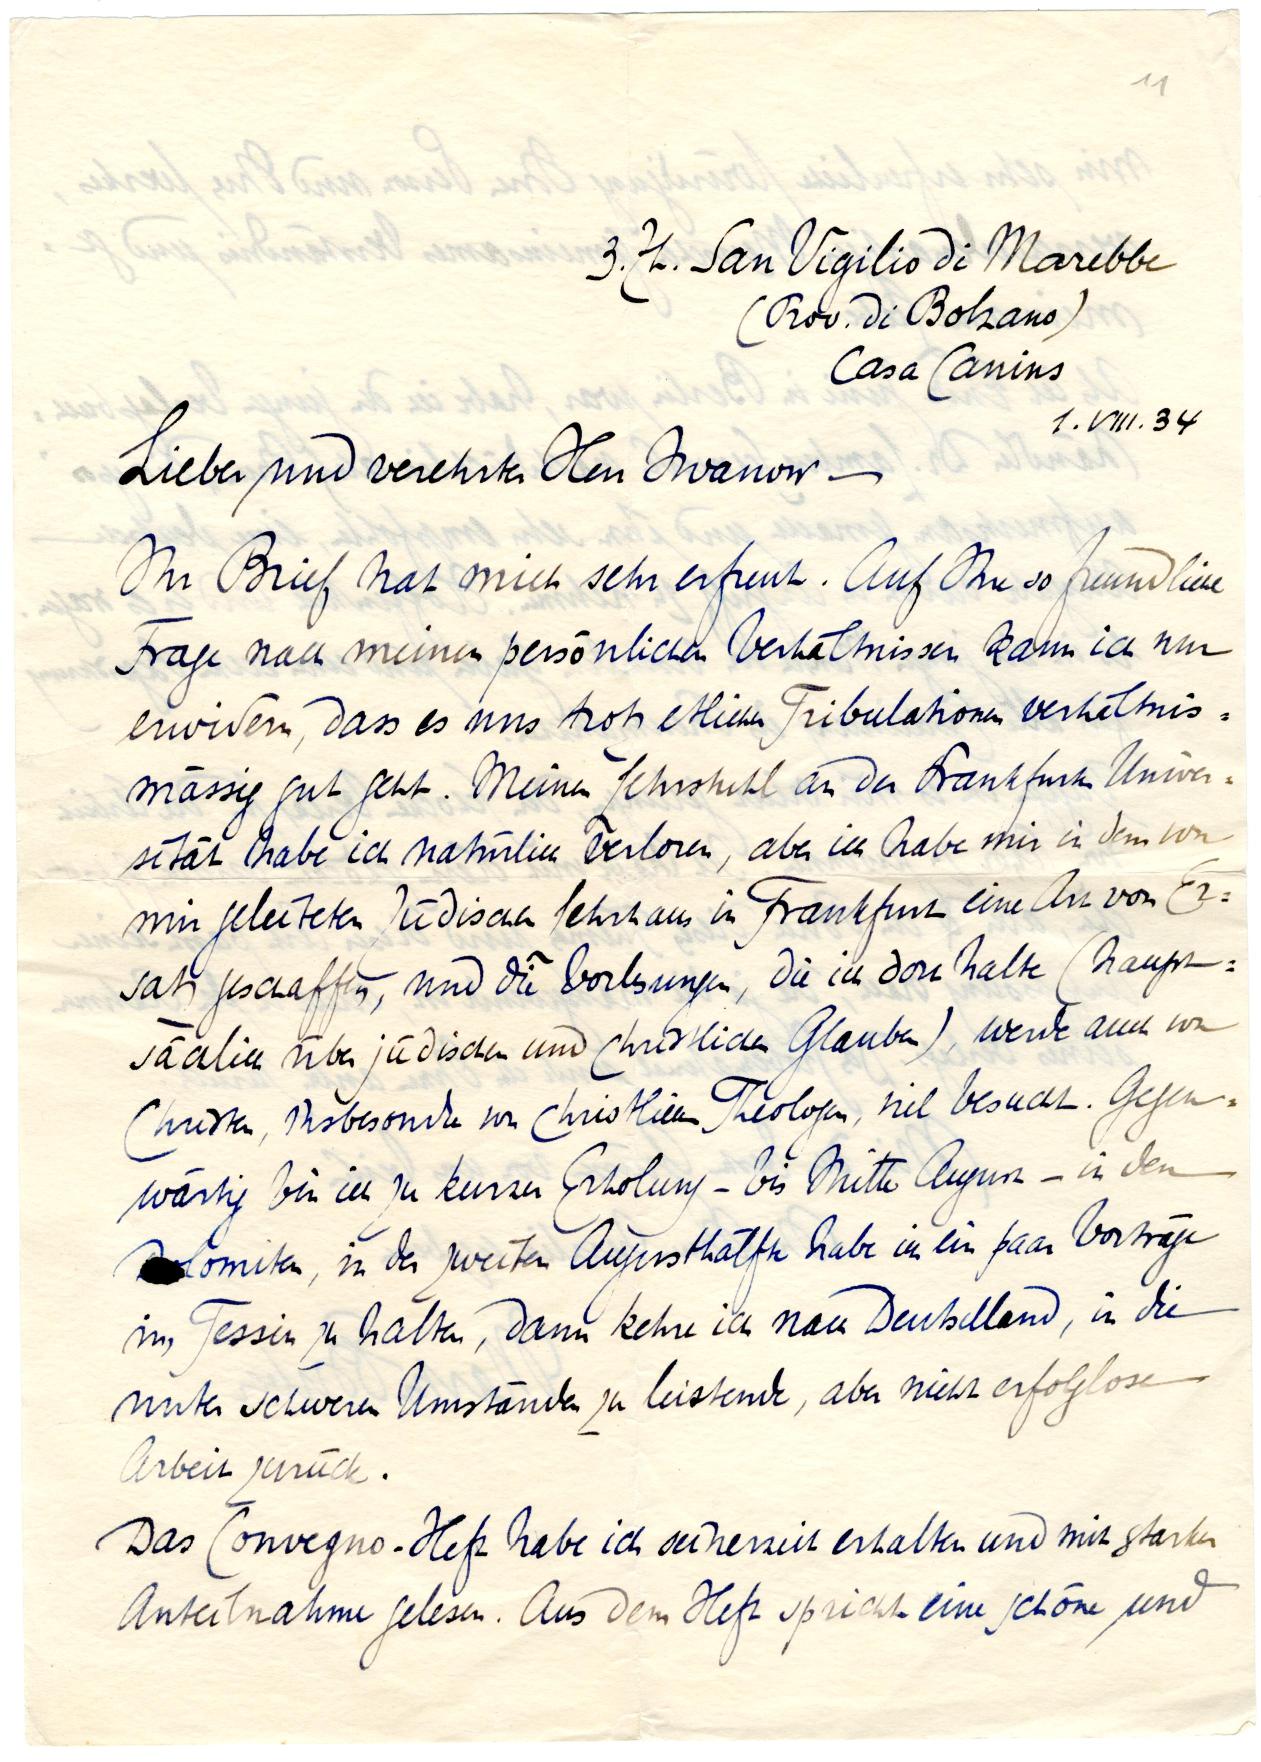 11
z. Zt. San Vigilio di Marebbe
(Prov. di Bolzano)
Casa Canins
1. VIII. 34
Lieber und verehrter Herr Iwanow –
Ihr Brief hat mich sehr erfreut. Auf Ihre so freundliche
Frage nach meinen persönlichen Verhältnissen kann ich nur
erwidern, dass es uns trotz etlicher Tribulationen verhältnis=
mässig gut geht. Meinen Lehrstuhl an der Frankfurter Univer=
sität habe ich natürlich verloren, aber ich habe mir in dem von
mir geleiteten Jüdischen Lehrhaus in Frankfurt eine Art von Er=
satz geschaffen, und die Vorlesungen, die ich dort halte (haupt=
sächlich über jüdischen und christlichen Glauben), werden auch von
Christen, insbesondere von christlichen Theologen, viel besucht. Gegen=
wärtig bin ich zu kurzer Erholung – bis Mitte August – in den
Dolomiten, in der zweiten Augusthälfte habe ich ein paar Vorträge
im Tessin zu halten, dann kehre ich nach Deutschland, in die
unter schweren Umständen zu leistende, aber nicht erfolglose
Arbeit zurück.
Das Convegno-Heft habe ich seinerzeit erhalten und mit starker
Anteilnahme gelesen. Aus dem Heft spricht eine schöne und